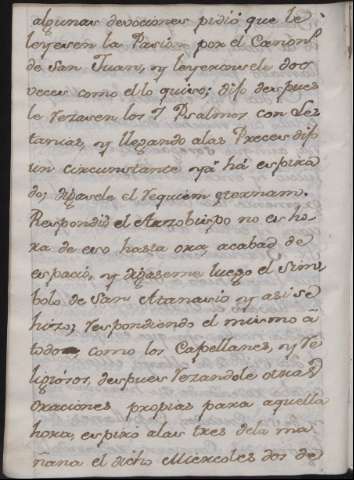 algunas devociones pidió que le
leyesen la Pasion por el Canonº
de San Juan, y leyeronsela dos
veces como el lo quiso; dijo despues
le rezasen los 7 Psalmos con Le-
tanias, y llegando a las Preces dijo
un circunstante ya há espira
do; digasele el requiem æternam.
Respondió el Arzobispo no es ho-
ra de eso hasta ora, acabad de
espacio, y digaseme luego el Sim-
bolo de San Atanasio y asi se
hizo; respondiendo el mismo á
todo, como los Capellanes, y re
ligiosos, despues rezandole otras
oraciones propias para aquella
hora, espiro a las tres de la ma
ñana el dicho Miercoles dos de